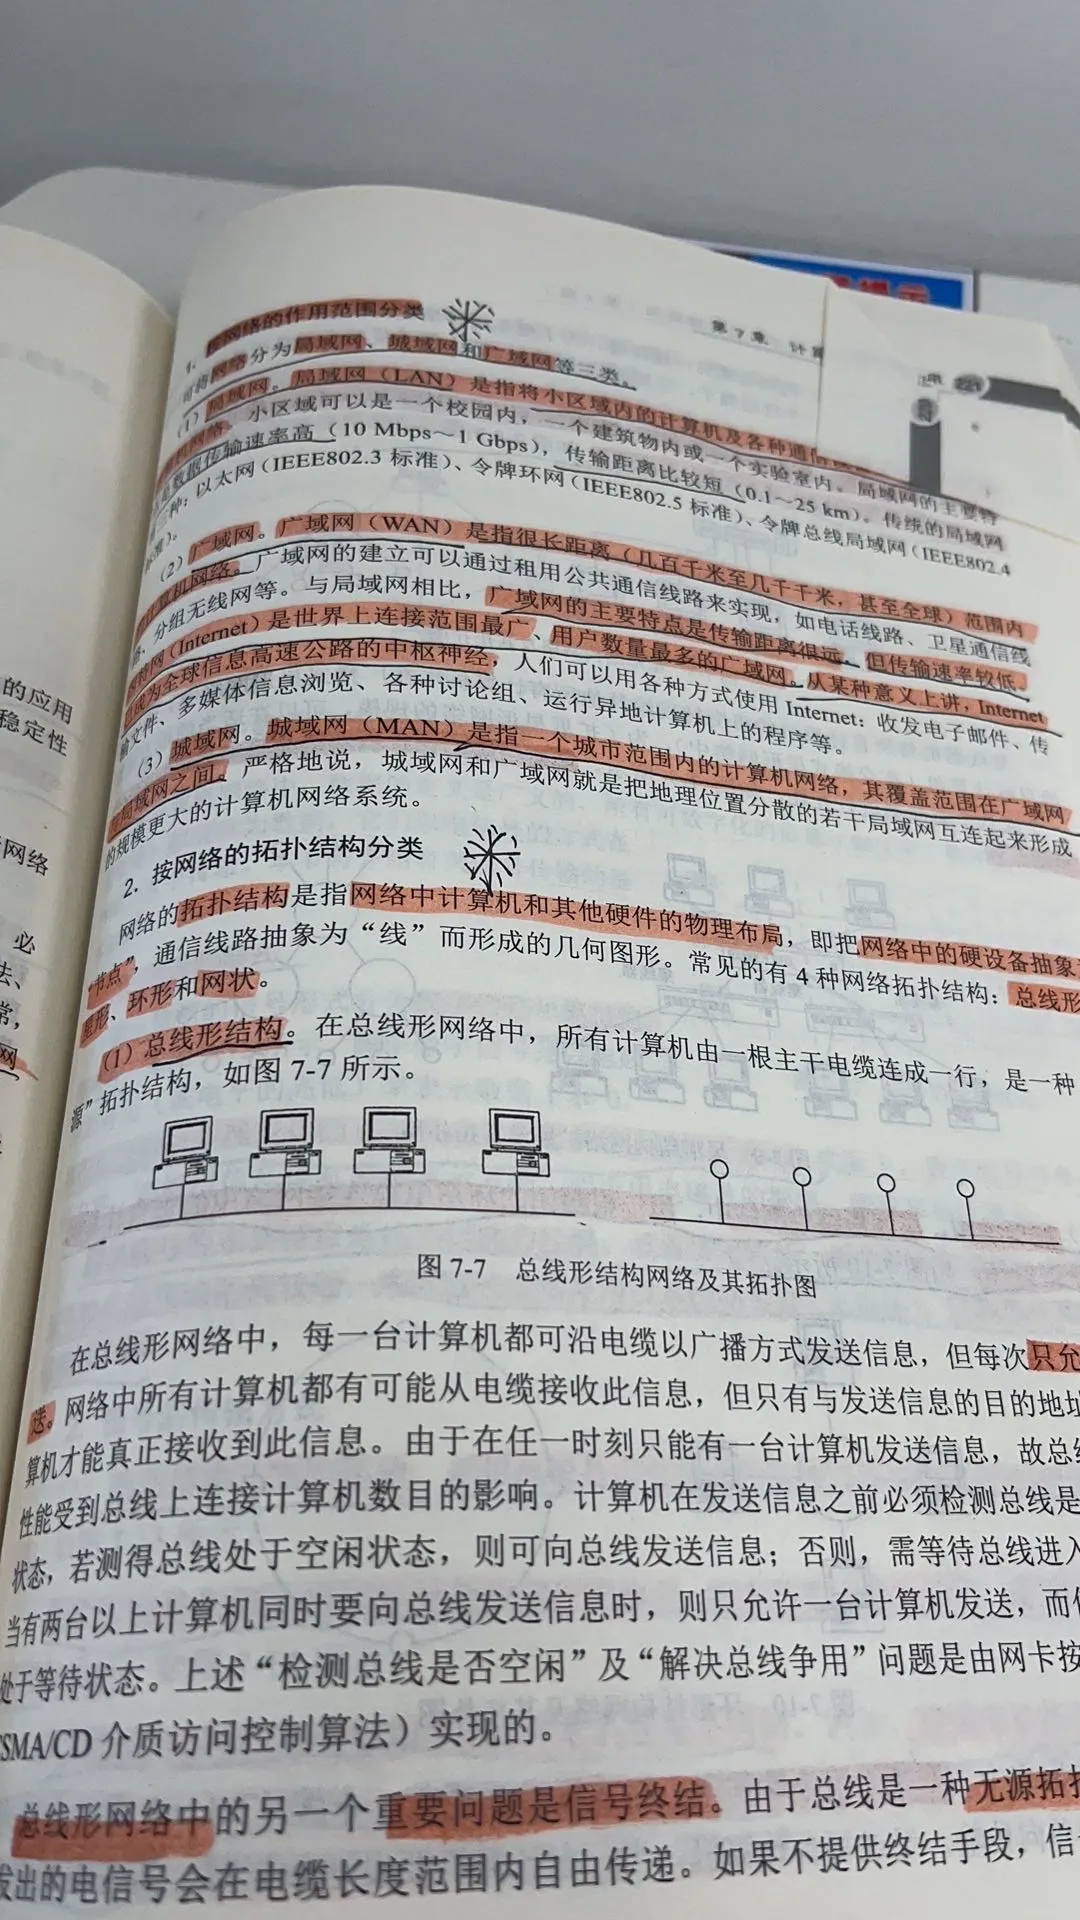 第7章 计
1. 按网络的作用范围分类
可将网络分为局域网、城域网和广域网等三类。
(1) 局域网。局域网(LAN)是指将小区域内的计算机及各种通信
机网络。小区域可以是一个校园内,一个建筑物内或一个实验室内。局域网的主要特
数据传输速率高(10 Mbps～1 Gbps),传输距离比较短(0.1～25 km)。传统的局域网
三种:以太网(IEEE802.3 标准)、令牌环网(IEEE802.5 标准)、令牌总线局域网(IEEE802.4
标准)。
(2) 广域网。广域网(WAN)是指很长距离(几百千米至几千千米,甚至全球)范围内
计算机网络。广域网的建立可以通过租用公共通信线路来实现,如电话线路、卫星通信线
路、分组无线网等。与局域网相比,广域网的主要特点是传输距离很远,但传输速率较低。
(Internet)是世界上连接范围最广、用户数量最多的广域网。从某种意义上讲,Internet
成为全球信息高速公路的中枢神经,人们可以用各种方式使用 Internet:收发电子邮件、传
输文件、多媒体信息浏览、各种讨论组、运行异地计算机上的程序等。
(3) 城域网。城域网(MAN)是指一个城市范围内的计算机网络,其覆盖范围在广域网
局域网之间。严格地说,城域网和广域网就是把地理位置分散的若干局域网互连起来形成
的规模更大的计算机网络系统。
2. 按网络的拓扑结构分类
网络的拓扑结构是指网络中计算机和其他硬件的物理布局,即把网络中的硬设备抽象
“节点”,通信线路抽象为“线”而形成的几何图形。常见的有 4 种网络拓扑结构:总线形
星形、环形和网状。
(1) 总线形结构。在总线形网络中,所有计算机由一根主干电缆连成一行,是一种
源”拓扑结构,如图 7-7 所示。
图 7-7 总线形结构网络及其拓扑图
在总线形网络中,每一台计算机都可沿电缆以广播方式发送信息,但每次只允
送。网络中所有计算机都有可能从电缆接收此信息,但只有与发送信息的目的地址
算机才能真正接收到此信息。由于在任一时刻只能有一台计算机发送信息,故总线
性能受到总线上连接计算机数目的影响。计算机在发送信息之前必须检测总线是
状态,若测得总线处于空闲状态,则可向总线发送信息;否则,需等待总线进入
当有两台以上计算机同时要向总线发送信息时,则只允许一台计算机发送,而
处于等待状态。上述“检测总线是否空闲”及“解决总线争用”问题是由网卡按
CSMA/CD 介质访问控制算法)实现的。
总线形网络中的另一个重要问题是信号终结。由于总线是一种无源拓扑
发出的电信号会在电缆长度范围内自由传递。如果不提供终结手段,信
的应用
稳定性
网络
必
法、
常,
网